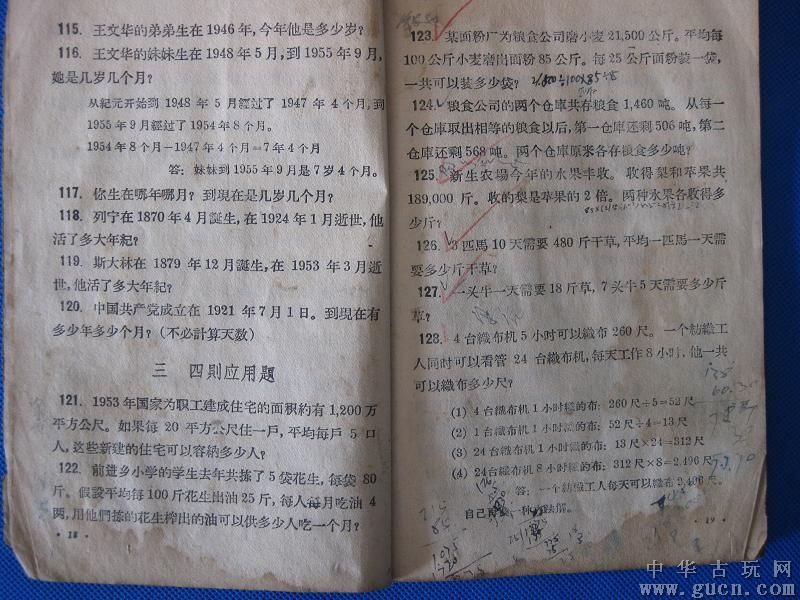 115. 王文华的弟弟生在 1946 年, 今年他是多少岁?
116. 王文华的妹妹生在 1948 年 5 月, 到 1955 年 9 月,
她是几岁几个月?
从紀元开始到 1948 年 5 月經过了 1947 年 4 个月, 到
1955 年 9 月經过了 1954 年 8 个月。
1954 年 8 个月—1947 年 4 个月=7 年 4 个月
答: 妹妹到 1955 年 9 月是 7 岁 4 个月。
117. 你生在哪年哪月? 到現在是几岁几个月?
118. 列宁在 1870 年 4 月誕生, 在 1924 年 1 月逝世, 他
活了多大年紀?
119. 斯大林在 1879 年 12 月誕生, 在 1953 年 3 月逝
世, 他活了多大年紀?
120. 中国共产党成立在 1921 年 7 月 1 日。到現在有
多少年多少个月? (不必計算天数)
三 四則应用題
121. 1953 年国家为职工建成住宅的面积約有 1,200 万
平方公尺。如果每 20 平方公尺住一戶, 平均每戶 5 口
人, 这些新建的住宅可以容納多少人?
122. 前进乡小学的学生去年共拣了 5 袋花生, 每袋 80
斤。假設平均每 100 斤花生出油 25 斤, 每人每月吃油 4
两, 用他們拣的花生榨出的油可以供多少人吃一个月?
· 18 ·
123. 某面粉厂为粮食公司磨小麦 21,500 公斤。平均每
100 公斤小麦磨出面粉 85 公斤。每 25 公斤面粉装一袋,
一共可以装多少袋?
124. 粮食公司的两个仓庫共存粮食 1,460 吨。从每一
个仓庫取出相等的粮食以后, 第一仓庫还剩 506 吨, 第二
仓庫还剩 568 吨。两个仓庫原来各存粮食多少吨?
125. 新生农場今年的水果丰收。收得梨和苹果共
189,000 斤。收的梨是苹果的 2 倍。两种水果各收得多
少斤?
126. 3 匹馬 10 天需要 480 斤干草, 平均一匹馬一天需
要多少斤干草?
127. 一头牛一天需要 18 斤草, 7 头牛 5 天需要多少斤
草?
128. 4 台織布机 5 小时可以織布 260 尺。一个紡織工
人同时可以看管 24 台織布机, 每天工作 8 小时, 他一共
可以織布多少尺?
(1) 4 台織布机 1 小时織的布: 260 尺÷5=52 尺
(2) 1 台織布机 1 小时織的布: 52 尺÷4=13 尺
(3) 24台織布机 1 小时織的布: 13 尺×24=312 尺
(4) 24台織布机 8 小时織的布: 312 尺×8=2,496 尺
答: 一个紡織工人每天可以織布 2,496 尺。
自己再 一种 法解。
· 19 ·
中华古玩网
www.gucn.com